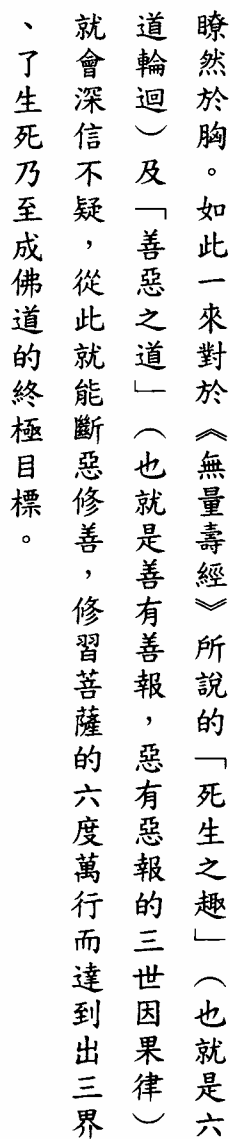 瞭然於胸。如此一來對於《無量壽經》所說的「死生之趣」（也就是六
道輪迴）及「善惡之道」（也就是善有善報，惡有惡報的三世因果律）
就會深信不疑，從此就能斷惡修善，修習菩薩的六度萬行而達到出三界
、了生死乃至成佛道的終極目標。